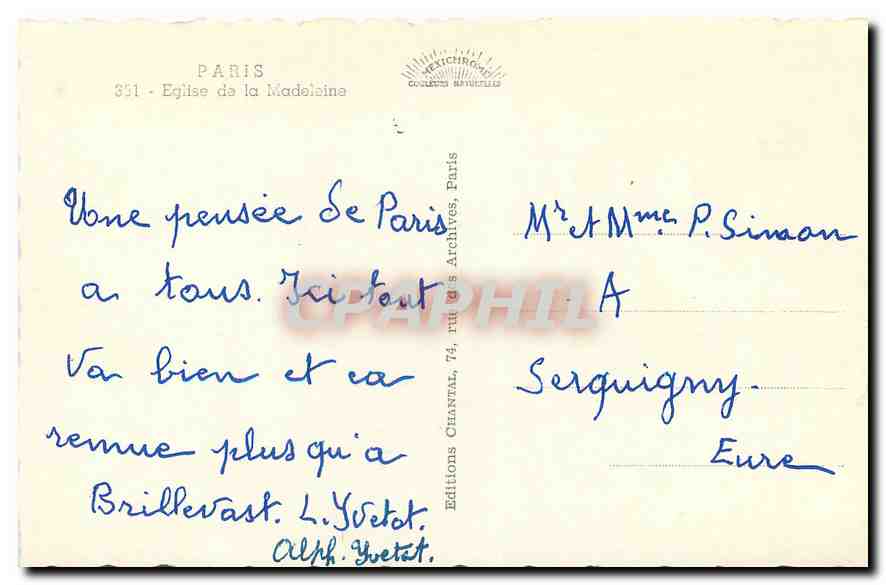 PARIS
351 - Eglise de la Madeleine
MEXICHROME
COULEURS NATURELLES
Une pensée de Paris
a tous. Ici tout
va bien et ca
remue plus qu'a
Brillevast. L. Yvetot.
Alph. Yvetot.
Editions CHANTAL, 74, rue des Archives, Paris
Mr et Mme P. Simon
A
Serquigny.
Eure
CPAPHIL